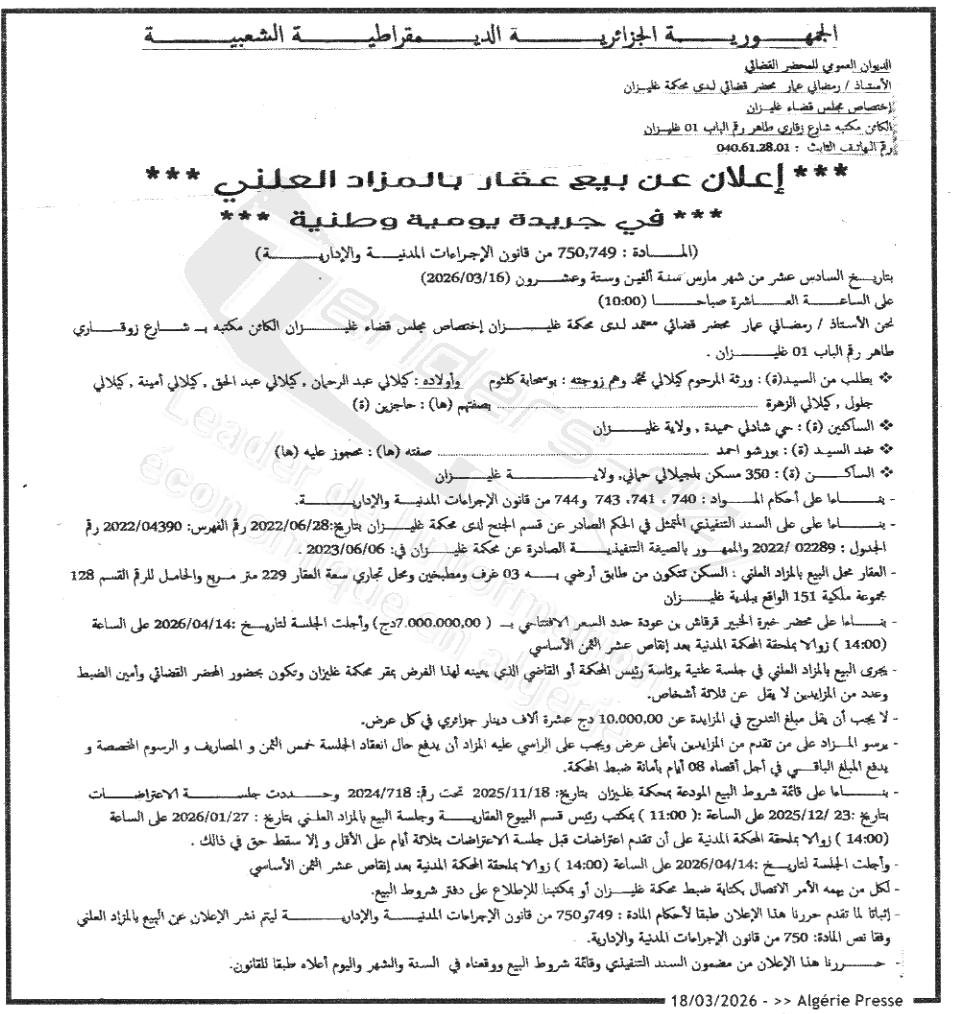 الجمهورية الجزائرية الديمقراطية الشعبية
الديوان العمومي للمحضر القضائي
الأستاذ / رمضاني عمار محضر قضائي لدى محكمة غليزان
إختصاص مجلس قضاء غليزان
الكائن مكتبه شارع زقاري طاهر رقم الباب 01 غليزان
رقم الهاتف الثابت : 040.61.28.01
*** إعلان عن بيع عقار بالمزاد العلني ***
*** في جريدة يومية وطنية ***
(المادة : 750,749 من قانون الإجراءات المدنية والإدارية)
بتاريخ السادس عشر من شهر مارس سنة ألفين وستة وعشرون (2026/03/16)
على الساعة العاشرة صباحا (10:00)
نحن الأستاذ / رمضاني عمار محضر قضائي معتمد لدى محكمة غليزان إختصاص مجلس قضاء غليزان الكائن مكتبه بـ شارع زوقاري
طاهر رقم الباب 01 غليزان .
❖ بطلب من السيد(ة) : ورثة المرحوم كيلالي محمد وهم زوجته : بوسحابة كلثوم وأولاده : كيلالي عبد الرحمان , كيلالي عبد الحق , كيلالي أمينة , كيلالي
جلول , كيلالي الزهرة .......... بصفتهم (ها) : حاجزين (ة)
❖ الساكنين (ة) : حي شادلي حميدة , ولاية غليزان
❖ ضد السيد (ة) : بورشو احمد .......... صفته (ها) : محجوز عليه (ها)
❖ الساكن (ة) : 350 مسكن بلجيلالي حماني, ولاية غليزان
- بناءا على أحكام المواد : 740 ، 741، 743 و744 من قانون الإجراءات المدنية والإدارية.
- بناءا على على السند التنفيذي المتمثل في الحكم الصادر عن قسم الجنح لدى محكمة غليزان بتاريخ:2022/06/28 رقم الفهرس: 2022/04390 رقم
الجدول : 02289 /2022 والممهور بالصيغة التنفيذية الصادرة عن محكمة غليزان في: 2023/06/06 .
- العقار محل البيع بالمزاد العلني : السكن تتكون من طابق أرضي به 03 غرف ومطبخين ومحل تجاري سعة العقار 229 متر مربع والحامل للرقم القسم 128
مجموعة ملكية 151 الواقع ببلدية غليزان
- بناءا على محضر خبرة الخبير قرقاش بن عودة حدد السعر الافتتاحي بـ ( 7.000.000,00دج) وأجلت الجلسة لتاريخ :2026/04/14 على الساعة
(14:00 ) زوالا بملحقة المحكمة المدنية بعد إنقاص عشر الثمن الأساسي
- يجرى البيع بالمزاد العلني في جلسة علنية برئاسة رئيس المحكمة أو القاضي الذي يعينه لهذا الغرض بمقر محكمة غليزان وتكون بحضور المحضر القضائي وأمين الضبط
وعدد من المزايدين لا يقل عن ثلاثة أشخاص.
- لا يجب أن يقل مبلغ التدرج في المزايدة عن 10.000,00 دج عشرة ألاف دينار جزائري في كل عرض.
- يرسو المزاد على من تقدم من المزايدين بأعلى عرض ويجب على الراسي عليه المزاد أن يدفع حال انعقاد الجلسة خمس الثمن و المصاريف و الرسوم المخصصة و
يدفع المبلغ الباقي في أجل أقصاه 08 أيام بأمانة ضبط المحكمة.
- بناءا على قائمة شروط البيع المودعة بمحكمة غليزان بتاريخ: 2025/11/18 تحت رقم: 2024/718 وحددت جلسة الاعتراضات
بتاريخ: 23 /2025/12 على الساعة :( 11:00 ) بمكتب رئيس قسم البيوع العقارية وجلسة البيع بالمزاد العلني بتاريخ : 2026/01/27 على الساعة
(14:00 ) زوالا بملحقة المحكمة المدنية على أن تقدم اعتراضات قبل جلسة الاعتراضات بثلاثة أيام على الأقل و إلا سقط حق في ذالك .
- وأجلت الجلسة لتاريخ :2026/04/14 على الساعة (14:00 ) زوالا بملحقة المحكمة المدنية بعد إنقاص عشر الثمن الأساسي
- لكل من يهمه الأمر الاتصال بكتابة ضبط محكمة غليزان أو بمكتبنا للإطلاع على دفتر شروط البيع.
- إثباتا لما تقدم حررنا هذا الإعلان طبقا لأحكام المادة : 749و750 من قانون الإجراءات المدنية والإدارية ليتم نشر الإعلان عن البيع بالمزاد العلني
وفقا نص المادة: 750 من قانون الإجراءات المدنية والإدارية.
- حررنا هذا الإعلان من مضمون السند التنفيذي وقائمة شروط البيع ووقعناه في السنة والشهر واليوم أعلاه طبقا للقانون.
Leader de l'information
économique en algérie
18/03/2026 - >> Algérie Presse